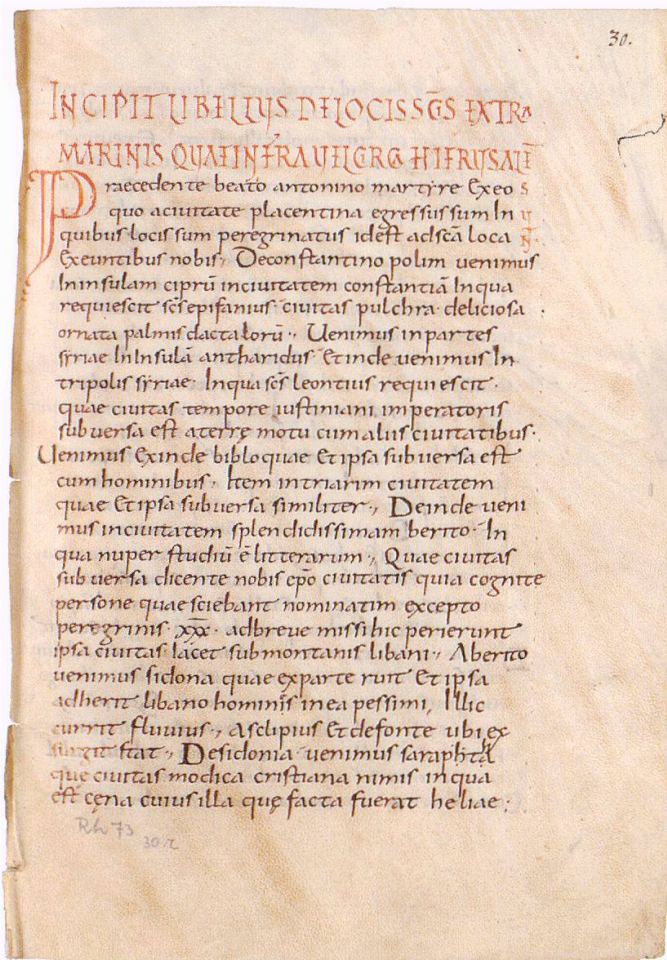 30.
INCIPIT LIBELLUS DE LOCIS SC̄S EXTRA
MARINIS
Praecedente beato antonino martyre Exeo
quo aciuitate placentina egressus sum In
quibus locis sum peregrinatus idest adscā loca
Exeuntibus nobis, De constantino polim uenimus
In insulam ciprū inciuitatem constantiā In qua
requiescit sc̄s epifanius· ciuitas pulchra· deliciosa
ornata palmis dactalorū·, Uenimus inpartes
syriae In Insulā antharidus· Et inde uenimus In
tripolis syriae· In qua sc̄s leontius requiescit·
quae ciuitas tempore iustiniani imperatoris
subuersa est aterrę motu cum aliis ciuitatibus·
Uenimus exinde biblo quae Et ipsa subuersa est
cum hominibus· Item intriarim ciuitatem
quae Et ipsa subuersa similiter·, Deinde ueni
mus inciuitatem splendidissimam berito· In
qua nuper studiū ē litterarum·, Quae ciuitas
subuersa dicente nobis ep̄o ciuitatis quia cognite
persone quae sciebant nominatim excepto
peregrinis· xxx· adbreue missi hic perierunt
ipsa ciuitas Iacet submontanis libani·, Aberito
uenimus sidona quae exparte ruit Et ipsa
adherit libano hominis in ea pessimi, Illic
currit fluuius·, Asclipius Et defonte ubi ex
surgit stat·, Desidonia· uenimus saraphta
que ciuitas modica cristiana nimis in qua
est cęna cuius illa quę facta fuerat heliae·
Rh 73
30 r